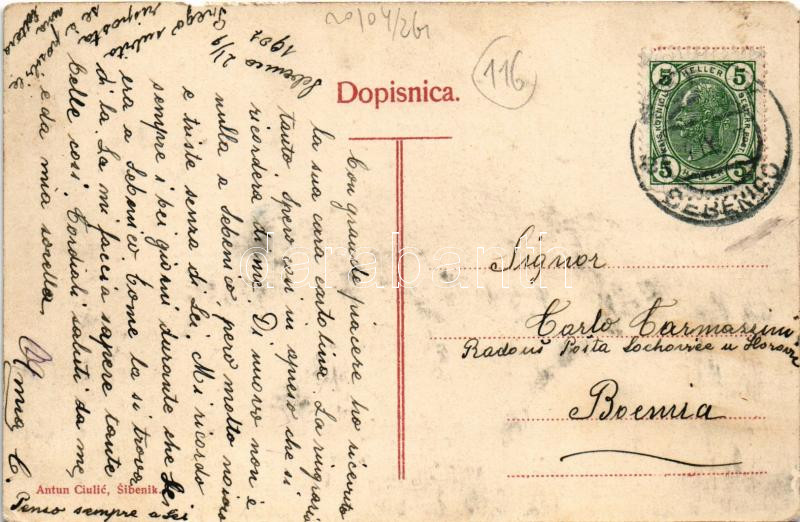 20/04/261
116
Dopisnica.
5 HELLER 5
5 5
SEBENICO
Sebenico 21/9
1907
Con grande piacere ho ricevuto
la sua cara cartolina. La ringrazio
tanto spero così in apresso che si
ricorderà di me. Di nuovo non è
nulla a Sebenico, però molto noioso
e triste senza di Lei. Mi ricordo
sempre i bei giorni durante che Lei
era a Sebenico. Come la si trova
di la. La mi faccia sapere tante
belle cosi. Cordiali saluti da me
e da mia sorella
Penso sempre a Lei
Prego subito
risposta
se è
Signor
Carlo Carmazzini
Radouš Pošta Lochovice u Hořovic
Boemia
Antun Ciulić, Šibenik.
darabanth